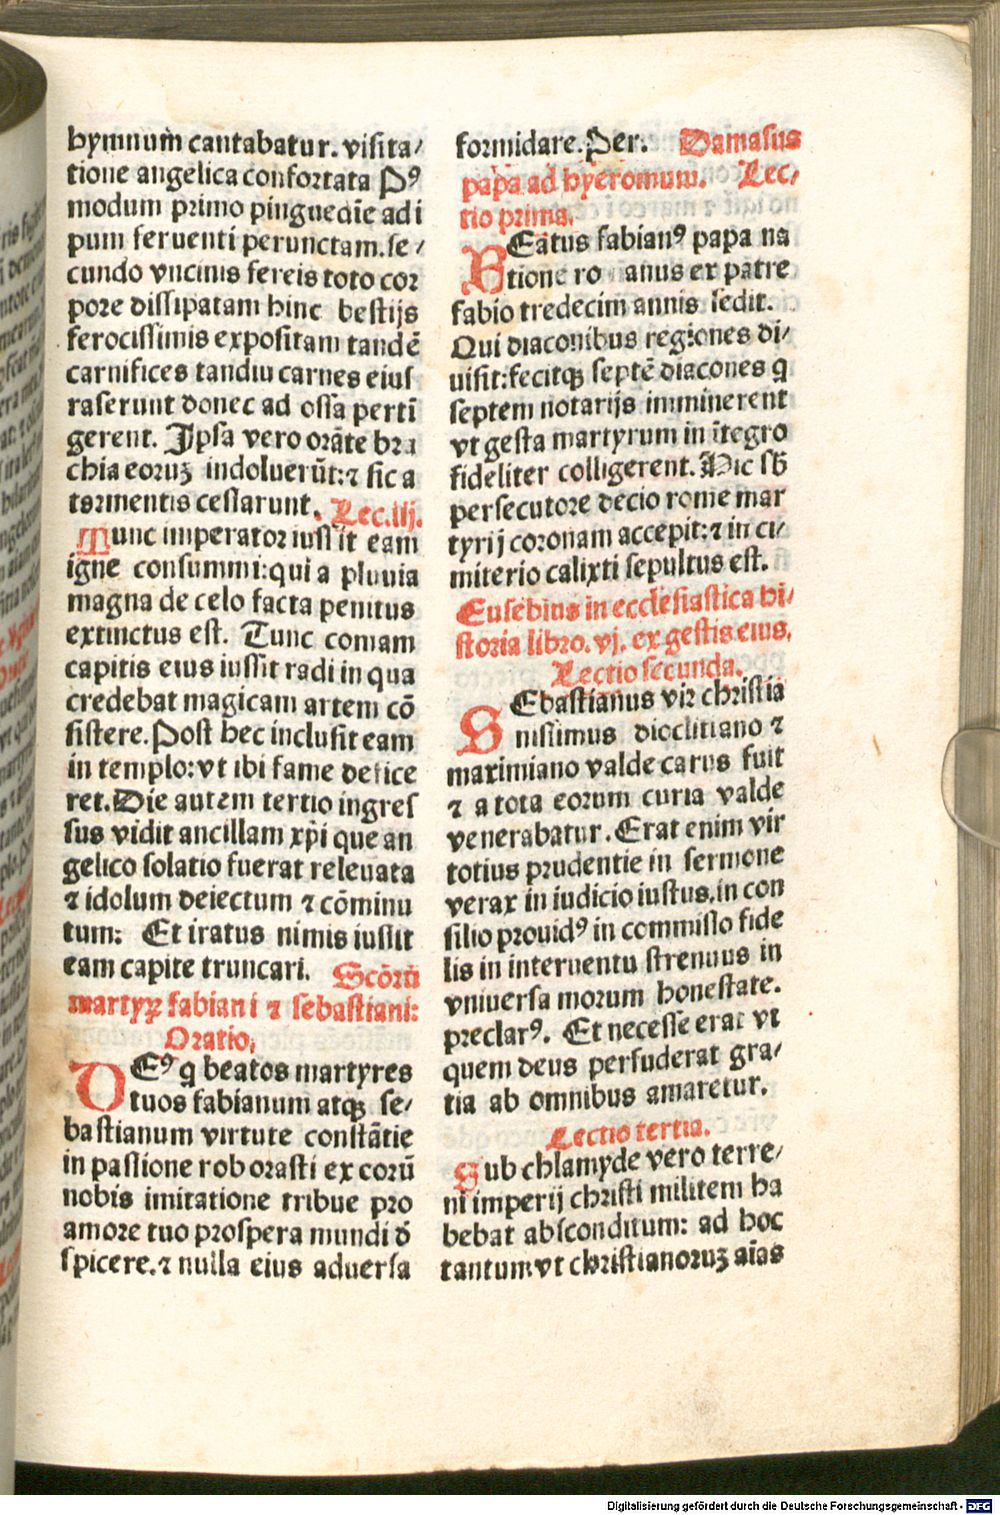 hymnum cantabatur. visita/
tione angelica confortata Pꝰ
modum primo pinguedīe ad i
pum feruenti perunctam. se/
cundo vncinis fereis toto cor
pore dissipatam hinc bestijs
ferocissimis expositam tandē
carnifices tandiu carnes eius
raserunt donec ad ossa perti
gerent. Ipsa vero orāte bra
chia eoruꝫ indoluerūt: ⁊ sic a
tormentis cessarunt. Lec. iij.
Tunc imperator iussit eam
igne consummi: qui a pluuia
magna de celo facta penitus
extinctus est. Tunc comam
capitis eius iussit radi in qua
credebat magicam artem cō
sistere. Post hec inclusit eam
in templo: vt ibi fame defice
ret. Die autem tertio ingres
sus vidit ancillam xp̄i que an
gelico solatio fuerat releuata
⁊ idolum deiectum ⁊ cōminu
tum: Et iratus nimis iussit
eam capite truncari. Scōrū
martyꝝ fabiani ⁊ sebastiani:
Oratio,
DEꝰ q beatos martyres
tuos fabianum atqꝫ se/
bastianum virtute constātie
in passione roborasti ex eorū
nobis imitatione tribue pro
amore tuo prospera mundi ď
spicere. ⁊ nulla eius aduersa
formidare. Per. Damasus
papa ad hyeromum. Lec/
tio prima.
BEatus fabianꝰ papa na
tione ro anus ex patre
fabio tredecim annis sedit.
Qui diaconibus regiones di/
uisit: fecitqꝫ septē diacones q
septem notarijs imminerent
vt gesta martyrum in ītegro
fideliter colligerent. Hic sb̄
persecutore decio rome mar
tyrij coronam accepit: ⁊ in ci/
miterio calixti sepultus est.
Eusebius in ecclesiastica hi/
storia libro. vj. ex gestis eius.
Lectio secunda.
SEbastianus vir christia
nissimus dioclitiano ⁊
maximiano valde carus fuit
⁊ a tota eorum curia valde
venerabatur. Erat enim vir
totius prudentie in sermone
verax in iudicio iustus. in con
silio prouidꝰ in commisso fide
lis in interuentu strenuus in
vniuersa morum honestate.
preclarꝰ. Et necesse erat vt
quem deus perfuderat gra/
tia ab omnibus amaretur.
Lectio tertia.
Sub chlamyde vero terre/
ni imperij christi militem ha
bebat absconditum: ad hoc
tantum vt christianoruꝫ aīas
Digitalisierung gefördert durch die Deutsche Forschungsgemeinschaft - DFG